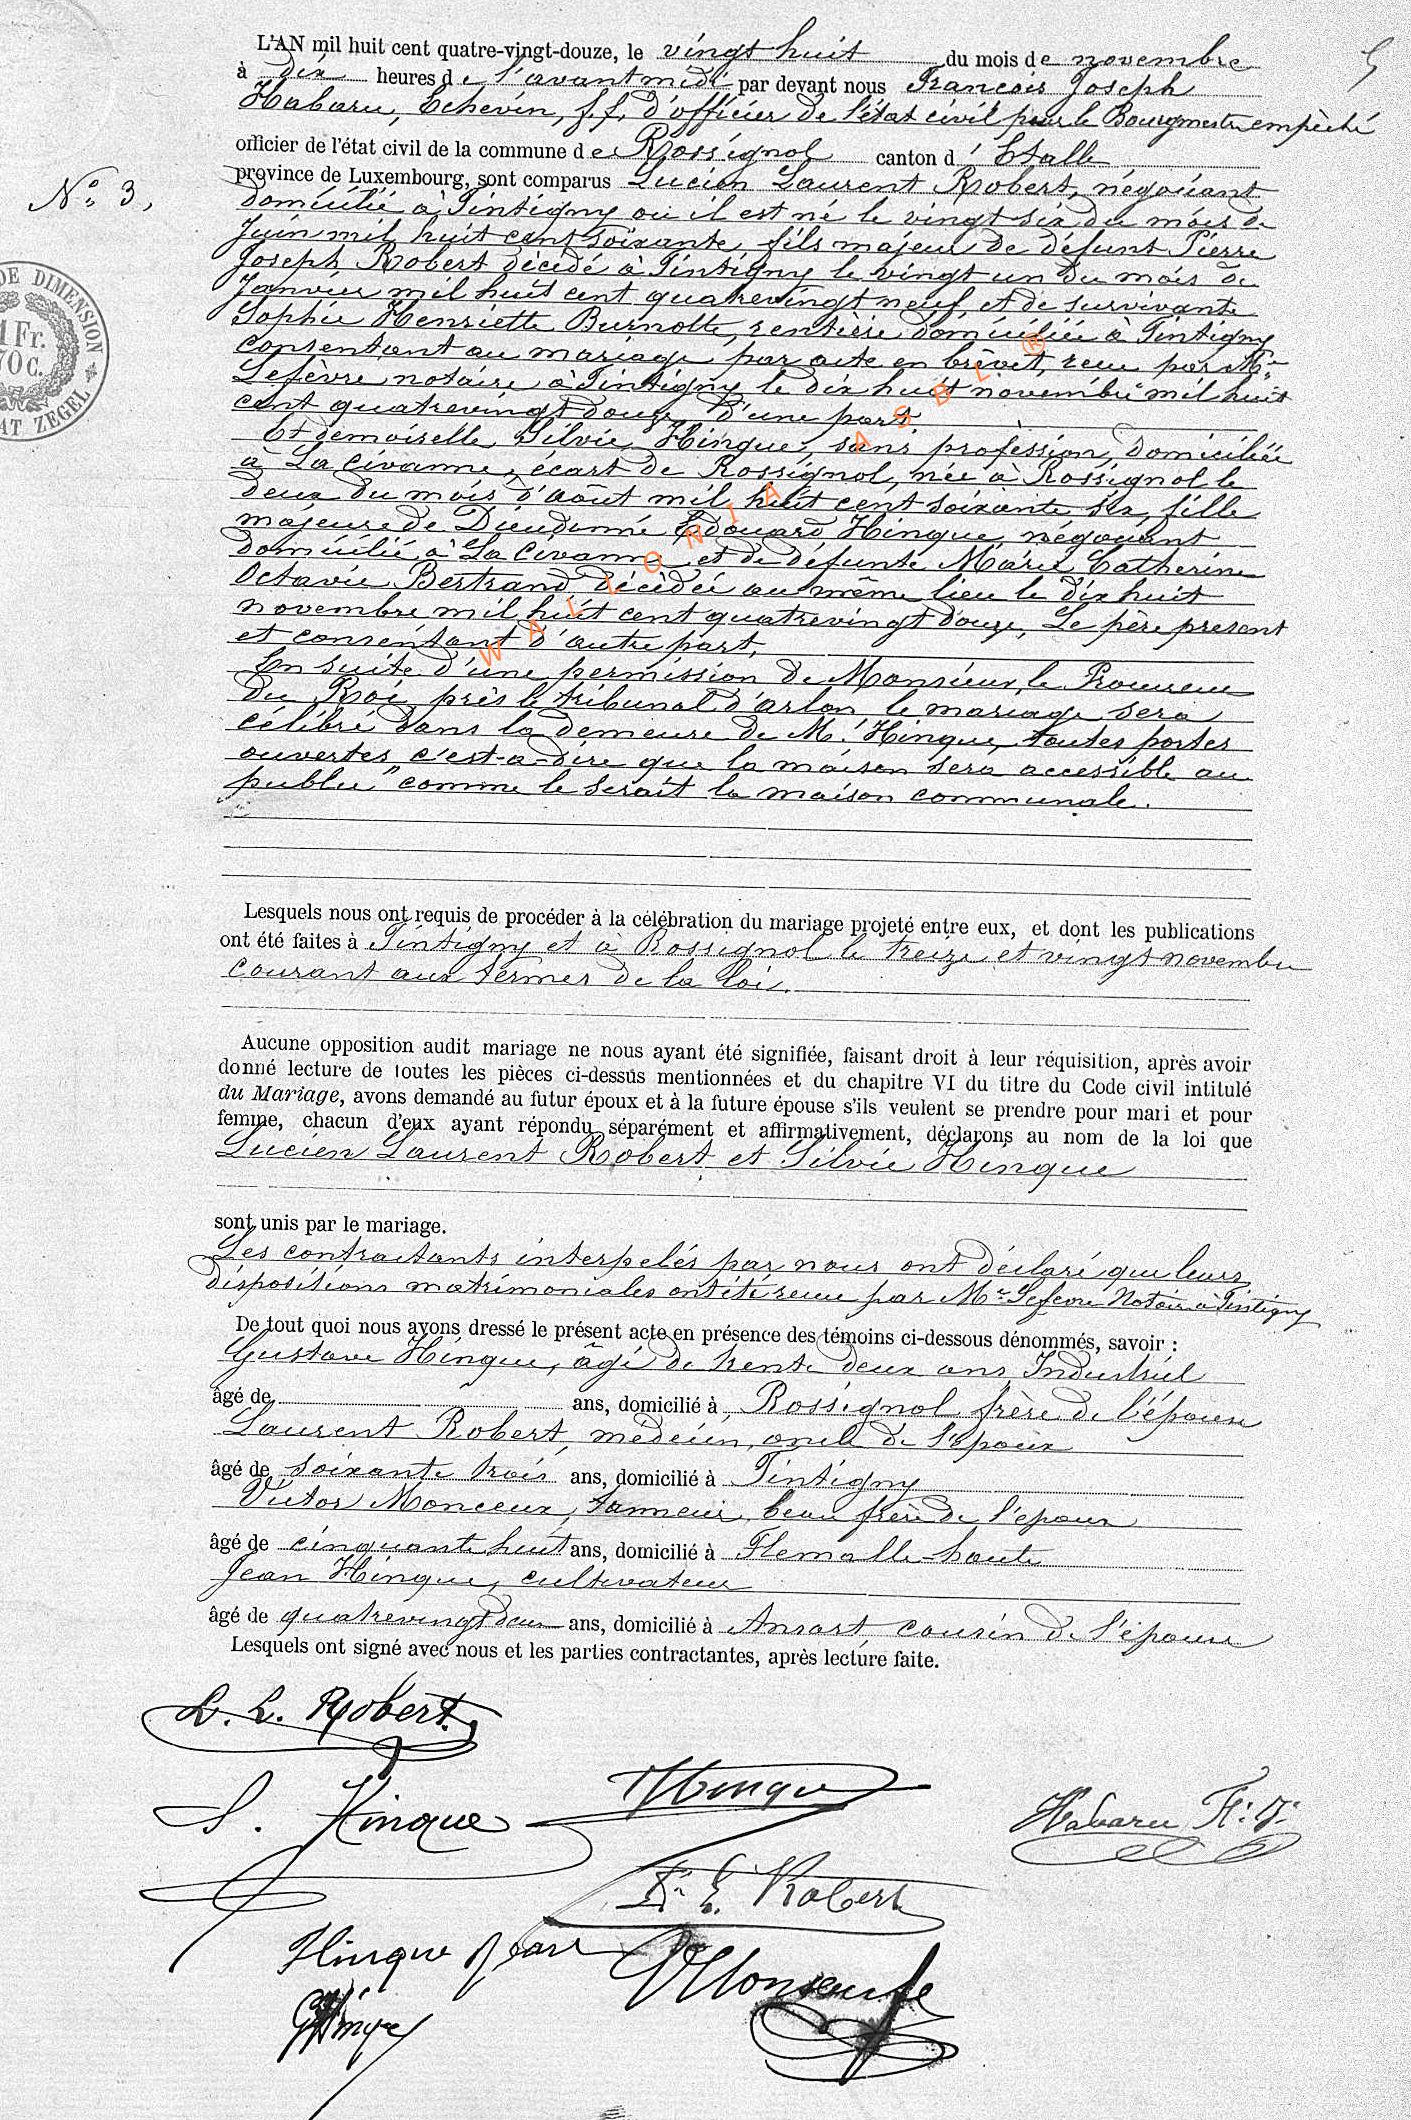 L'AN mil huit cent quatre-vingt-douze, le vingt huit du mois de novembre
à dix heures de l'avant midi par devant nous François Joseph
Habaru, Echevin, f.f. d'officier de l'état civil pour le Bourgmestre empêché
officier de l'état civil de la commune de Rossignol canton d'Etalle
province de Luxembourg, sont comparus Lucien Laurent Robert, négociant
N° 3,
domicilié à Tintigny où il est né le vingt six du mois de
Juin mil huit cent soixante, fils majeur de défunt Pierre
Joseph Robert décédé à Tintigny le vingt un du mois de
Janvier mil huit cent quatrevingt neuf, et de survivante
Sophie Henriette Burnotte, rentière domiciliée à Tintigny
consentant au mariage par acte en brèvet, reçu par Me
Lefèvre notaire à Tintigny le dix huit novembre mil huit
cent quatrevingt douze, d'une part.
Et demoiselle Silvie Hinque, sans profession, domiciliée
à La Civanne, écart de Rossignol, née à Rossignol le
deux du mois d'août mil huit cent soixante six, fille
majeure de Dieudonné Edouard Hinque, négociant
domicilié à La Civanne et de défunte Marie Catherine
Octavie Bertrand décédée au même lieu le dix huit
novembre mil huit cent quatrevingt douze, Le père présent
et consentant d'autre part,
En suite d'une permission de Monsieur le Procureur
du Roi près le tribunal d'arlon le mariage sera
célébré dans la demeure de Mr Hinque, toutes portes
ouvertes, c'est-a-dire que la maison sera accessible au
public" comme le serait la maison communale.
DE DIMENSION
1 Fr.
70 C.
AT ZEGEL
WALLONIA ASBL ®
Lesquels nous ont requis de procéder à la célébration du mariage projeté entre eux, et dont les publications
ont été faites à Tintigny et à Rossignol le treize et vingt novembre
courant aux termes de la loi.
Aucune opposition audit mariage ne nous ayant été signifiée, faisant droit à leur réquisition, après avoir
donné lecture de toutes les pièces ci-dessus mentionnées et du chapitre VI du titre du Code civil intitulé
du Mariage, avons demandé au futur époux et à la future épouse s'ils veulent se prendre pour mari et pour
femme, chacun d'eux ayant répondu séparément et affirmativement, déclarons au nom de la loi que
Lucien Laurent Robert et Silvie Hinque
sont unis par le mariage.
Les contractants interpelés par nous ont déclaré que leurs
dispositions matrimoniales ont été reçue par Mr Lefevre Notaire à Tintigny
De tout quoi nous avons dressé le présent acte en présence des témoins ci-dessous dénommés, savoir :
Gustave Hinque, âgé de trente deux ans, Industriel
âgé de ans, domicilié à Rossignol frère de l'épouse
Laurent Robert, médecin, oncle de l'epoux
âgé de soixante trois ans, domicilié à Tintigny
Victor Monceux, tanneur beau frère de l'epoux
âgé de cinquante huit ans, domicilié à Flemalle-haute
Jean Hinque, cultivateur
âgé de quatrevingt deux ans, domicilié à Ansart cousin de l'épouse
Lesquels ont signé avec nous et les parties contractantes, après lecture faite.
L. L. Robert
Hinque
S. Hinque
Habaru F: J:
Robert
Hinque Jean
G Hinque